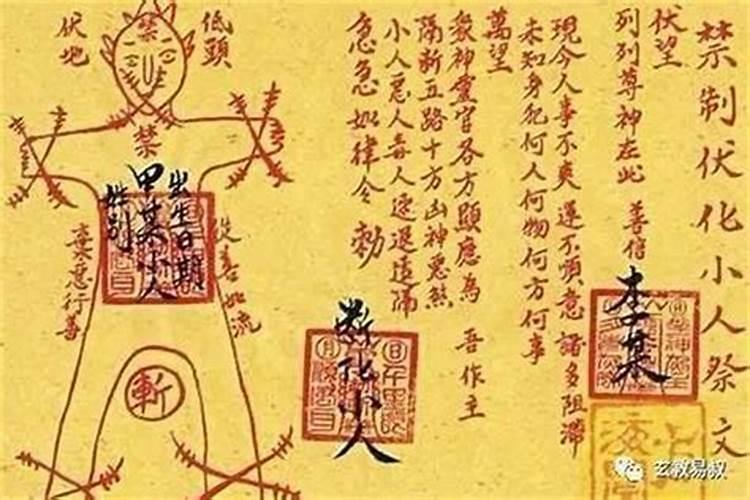 禁制伏化小人祭文
伏望
列列尊神在此 善信 李某
現今人事不爽 運不順意 諸多阻滯
未知身犯何人何物何方何事
萬望
眾神靈官各方顯應為 吾作主
隔斬五路十方凶神惡煞
小人惡人毒人速退遠隔
急急如律令 勅
斷化小人
低頭
伏地
禁
禁
出生日期
甲某小人
姓別
從善如流
棄惡行善
斬
玄教易叔